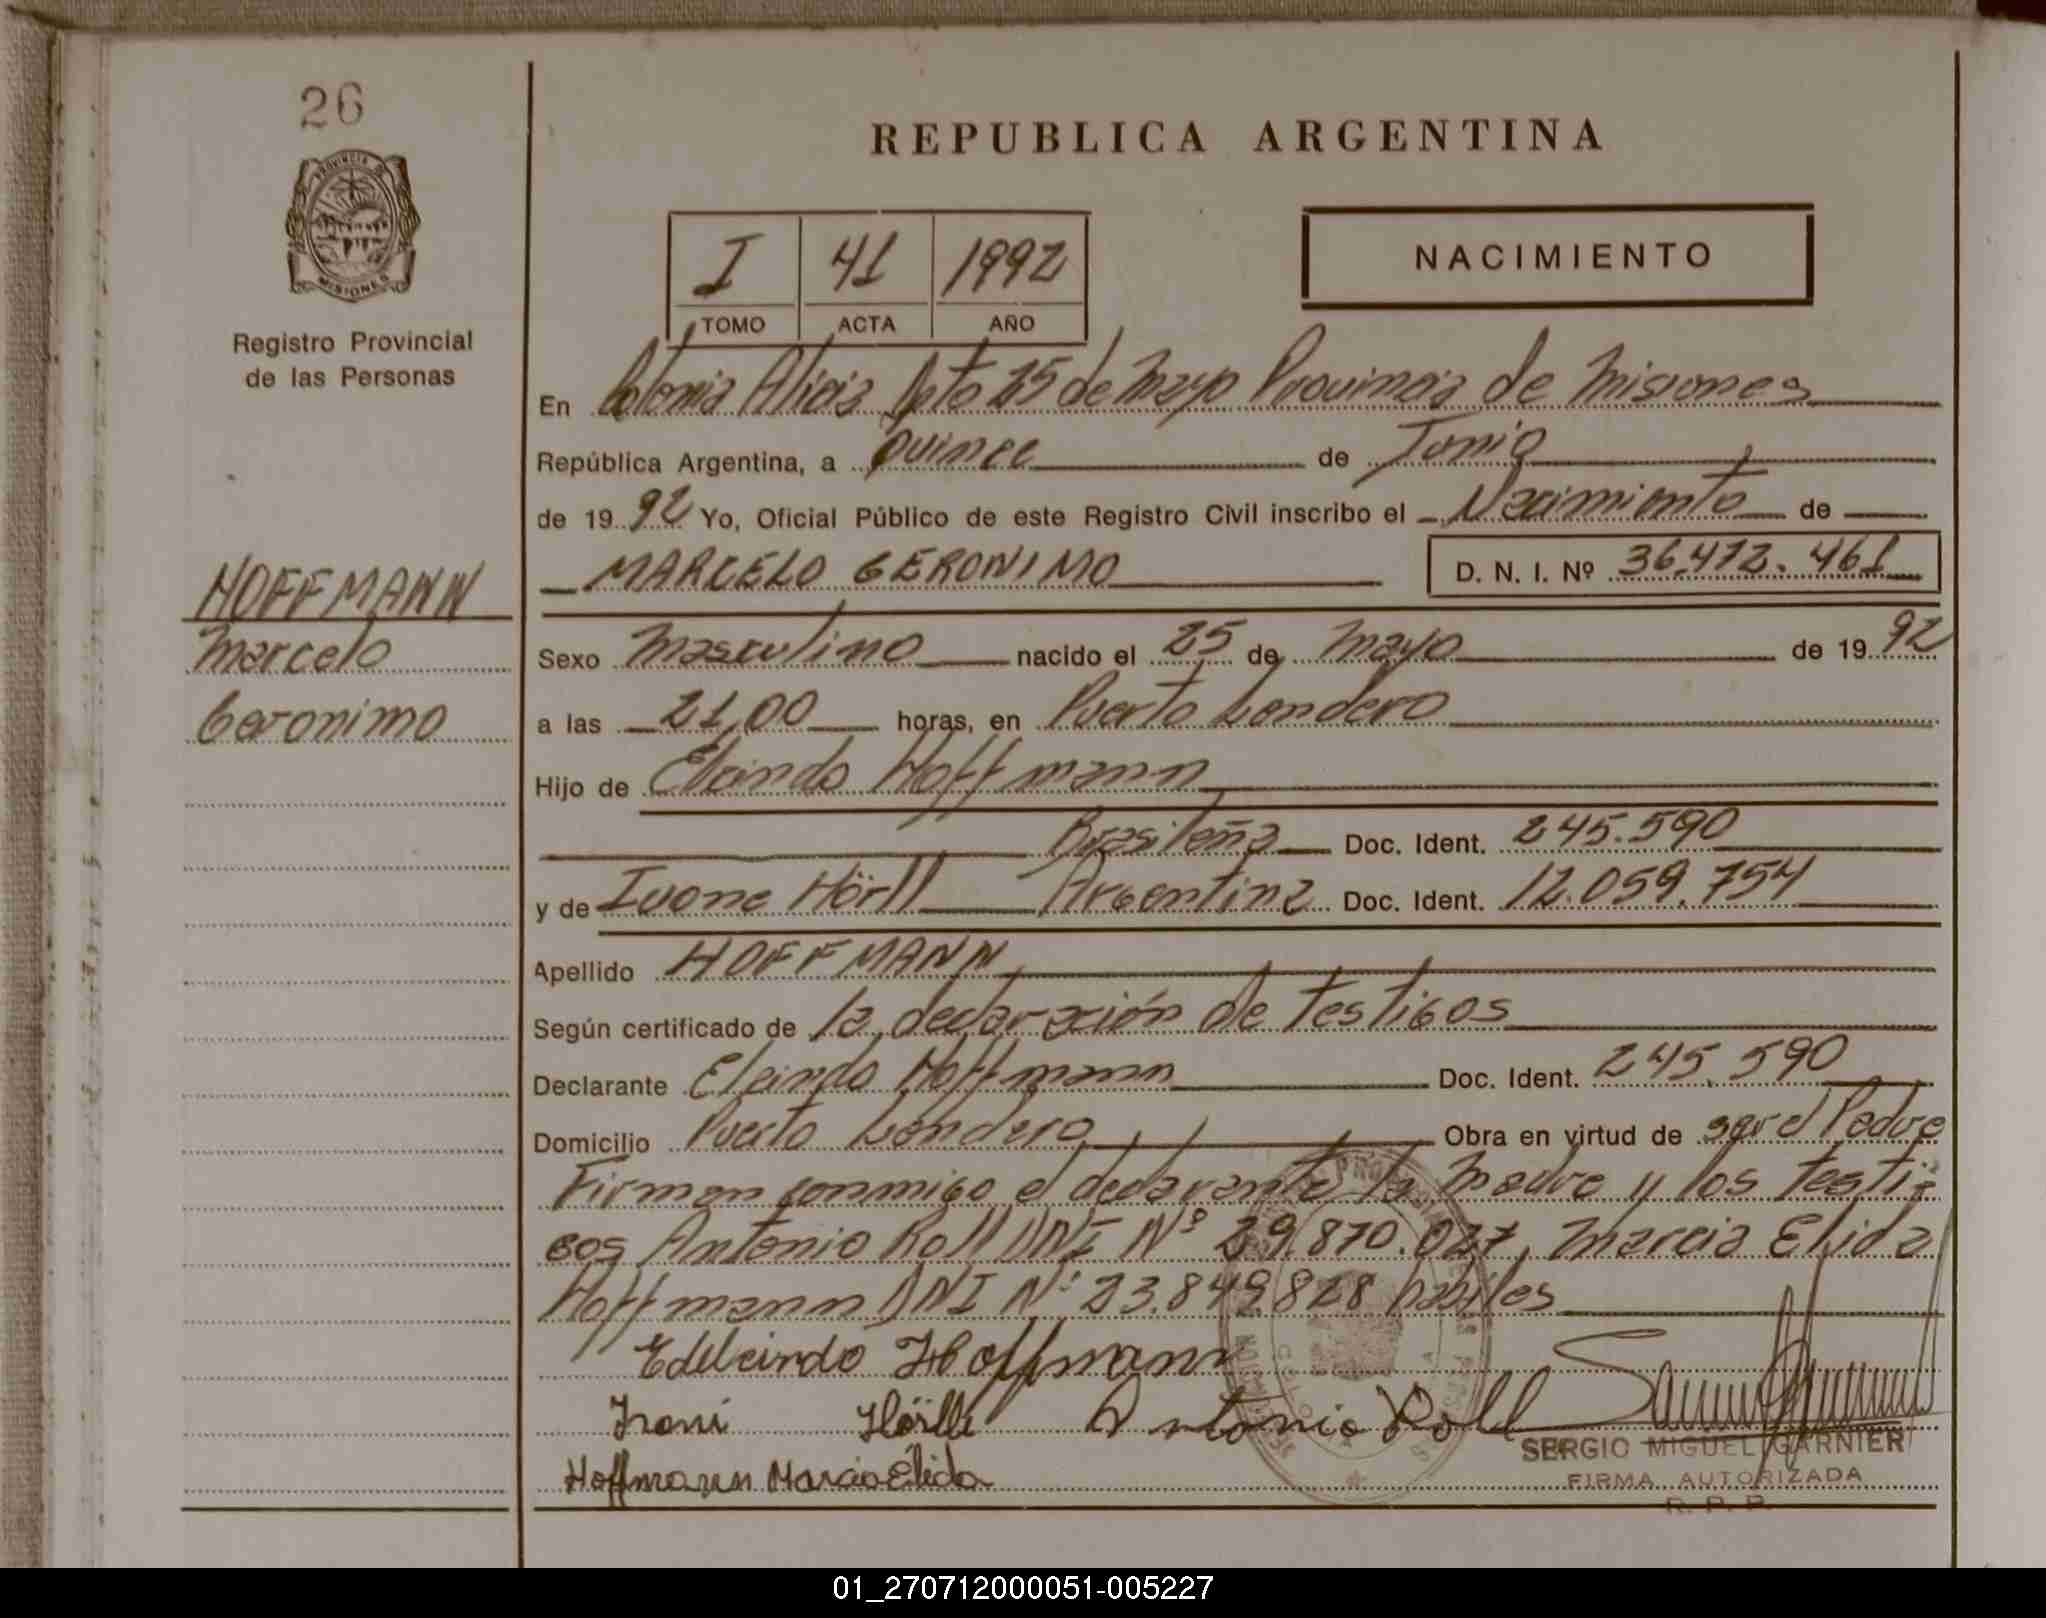 26
PROVINCIA DE
MISIONES
Registro Provincial
de las Personas
HOFFMANN
Marcelo
Geronimo
REPUBLICA ARGENTINA
I 41 1992
TOMO ACTA AÑO
NACIMIENTO
En Colonia Alicia Dpto 25 de Mayo Provincia de Misiones
República Argentina, a quince de Junio
de 1992 Yo, Oficial Público de este Registro Civil inscribo el Nacimiento de
MARCELO GERONIMO D. N. I. Nº 36.472.461
Sexo Masculino nacido el 25 de Mayo de 1992
a las 21,00 horas, en Puerto Londero
Hijo de Elcindo Hoffmann
Brasileña Doc. Ident. 245.590
y de Ivone Hörll Argentina Doc. Ident. 12.059.754
Apellido HOFFMANN
Según certificado de la declaración de Testigos
Declarante Elcindo Hoffmann Doc. Ident. 245.590
Domicilio Puerto Londero Obra en virtud de ser el Padre
Firman conmigo el declarante la Madre y los Testi-
gos Antonio Roll DNI Nº 29.870.027, Marcia Elida
Hoffmann DNI Nº 23.849.828 habiles
Hoffmann
Hörlle Antonio Roll
SERGIO MIGUEL GARNIER
Hoffmann Marcia Elida
FIRMA AUTORIZADA
R. P. P.
01_270712000051-005227